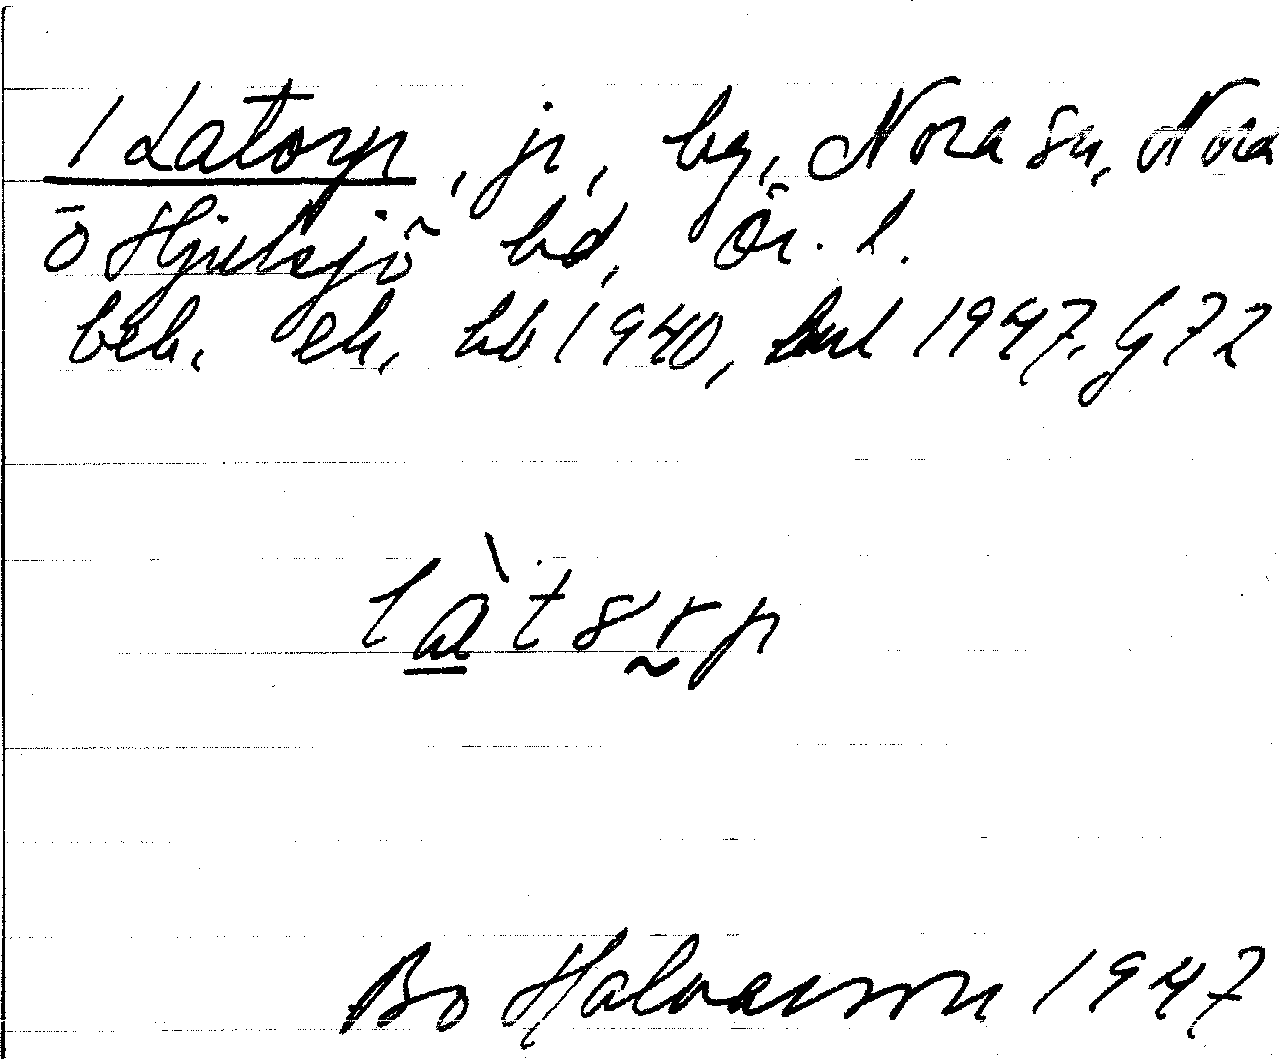 1 Latorp, jr, by, Nora sn, Nora
o Hjulsjö bd, Ör. l.
beb. ek, hb 1940, 1947. G 72
làtsrp
Bo Halvarsson 1947